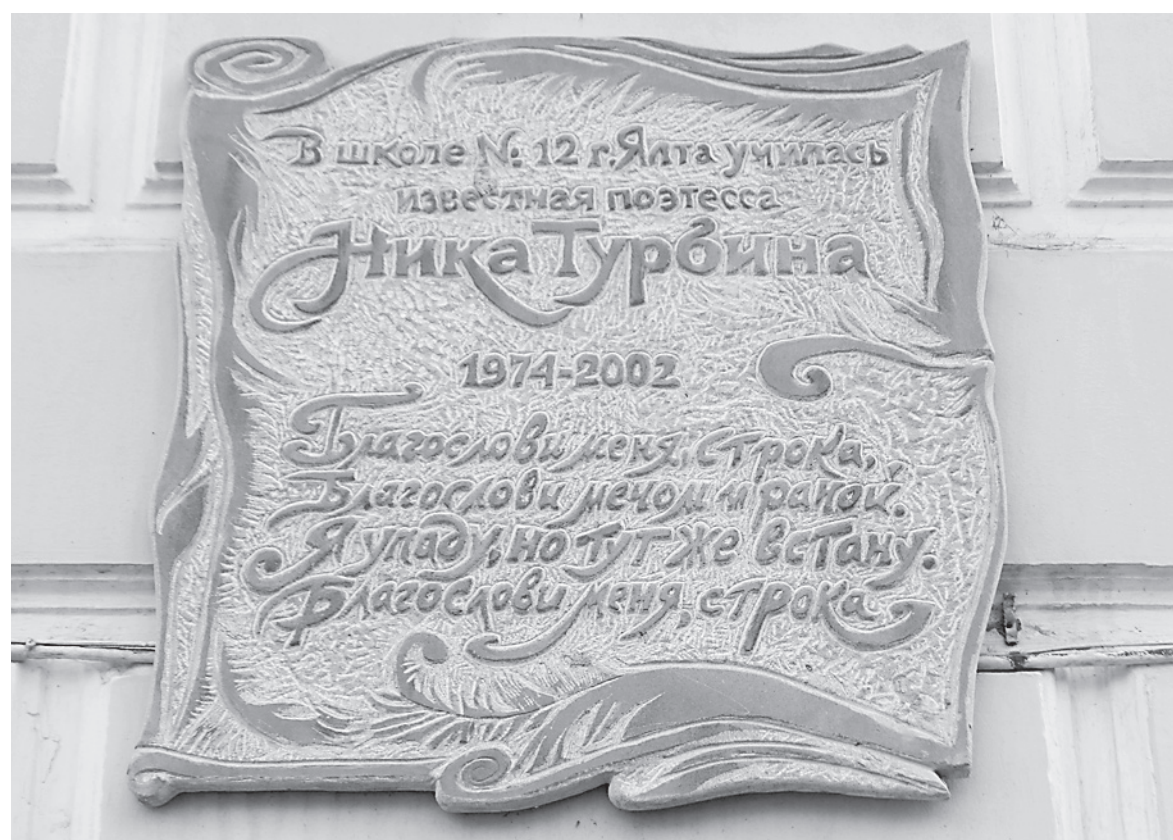 В школе №. 12 г. Ялта училась
известная поэтесса
Ника Турбина
1974-2002
Благослови меня, строка,
Благослови мечом и раной.
Я упаду, но тут же встану.
Благослови меня, строка